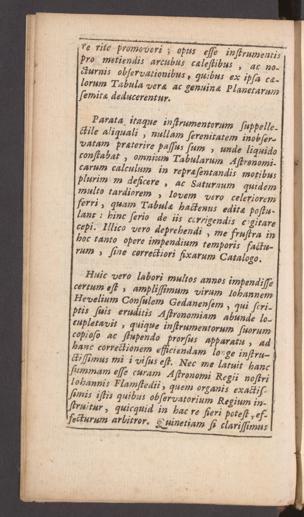 re rite promoveri ; opus esse instrumentis
pro metiendis arcubus cælestibus , ac no-
cturnis observationibus, quibus ex ipsa cæ-
lorum Tabula veræ ac genuinæ Planetarum
semitæ deducerentur.
Parata itaque instrumentorum suppelle-
ctile aliquali , nullam serenitatem inobser-
vatam præterire passus sum , unde liquido
constabat , omnium Tabularum Astronomi-
carum calculum in repræsentandis motibus
plurim m deficere , ac Saturnum quidem
multo tardiorem , Iovem vero celeriorem
ferri , quam Tabulæ hactenus editæ postu-
lant : hinc serio de iis corrigendis cogitare
cepi. Illico vero deprehendi , me frustra in
hoc tanto opere impendium temporis factu-
rum , sine correctiori fixarum Catalogo.
Huic vero labori multos annos impendisse
certum est , amplissimum virum Iohannem
Hevelium Consulem Gedanensem , qui scri-
ptis suis eruditis Astronomiam abunde lo-
cupletavit , quique instrumentorum suorum
copioso ac stupendo prorsus apparatu , ad
hanc correctionem efficiendam longe instru-
ctissimus mi i visus est. Nec me latuit hanc
summam esse curam Astronomi Regii nostri
Iohannis Flamstedii , quem organis exactis-
simis istis quibus observatorium Regium in-
struitur , quicquid in hac re fieri potest , ef-
fecturum arbitror. Quinetiam si clarissimus